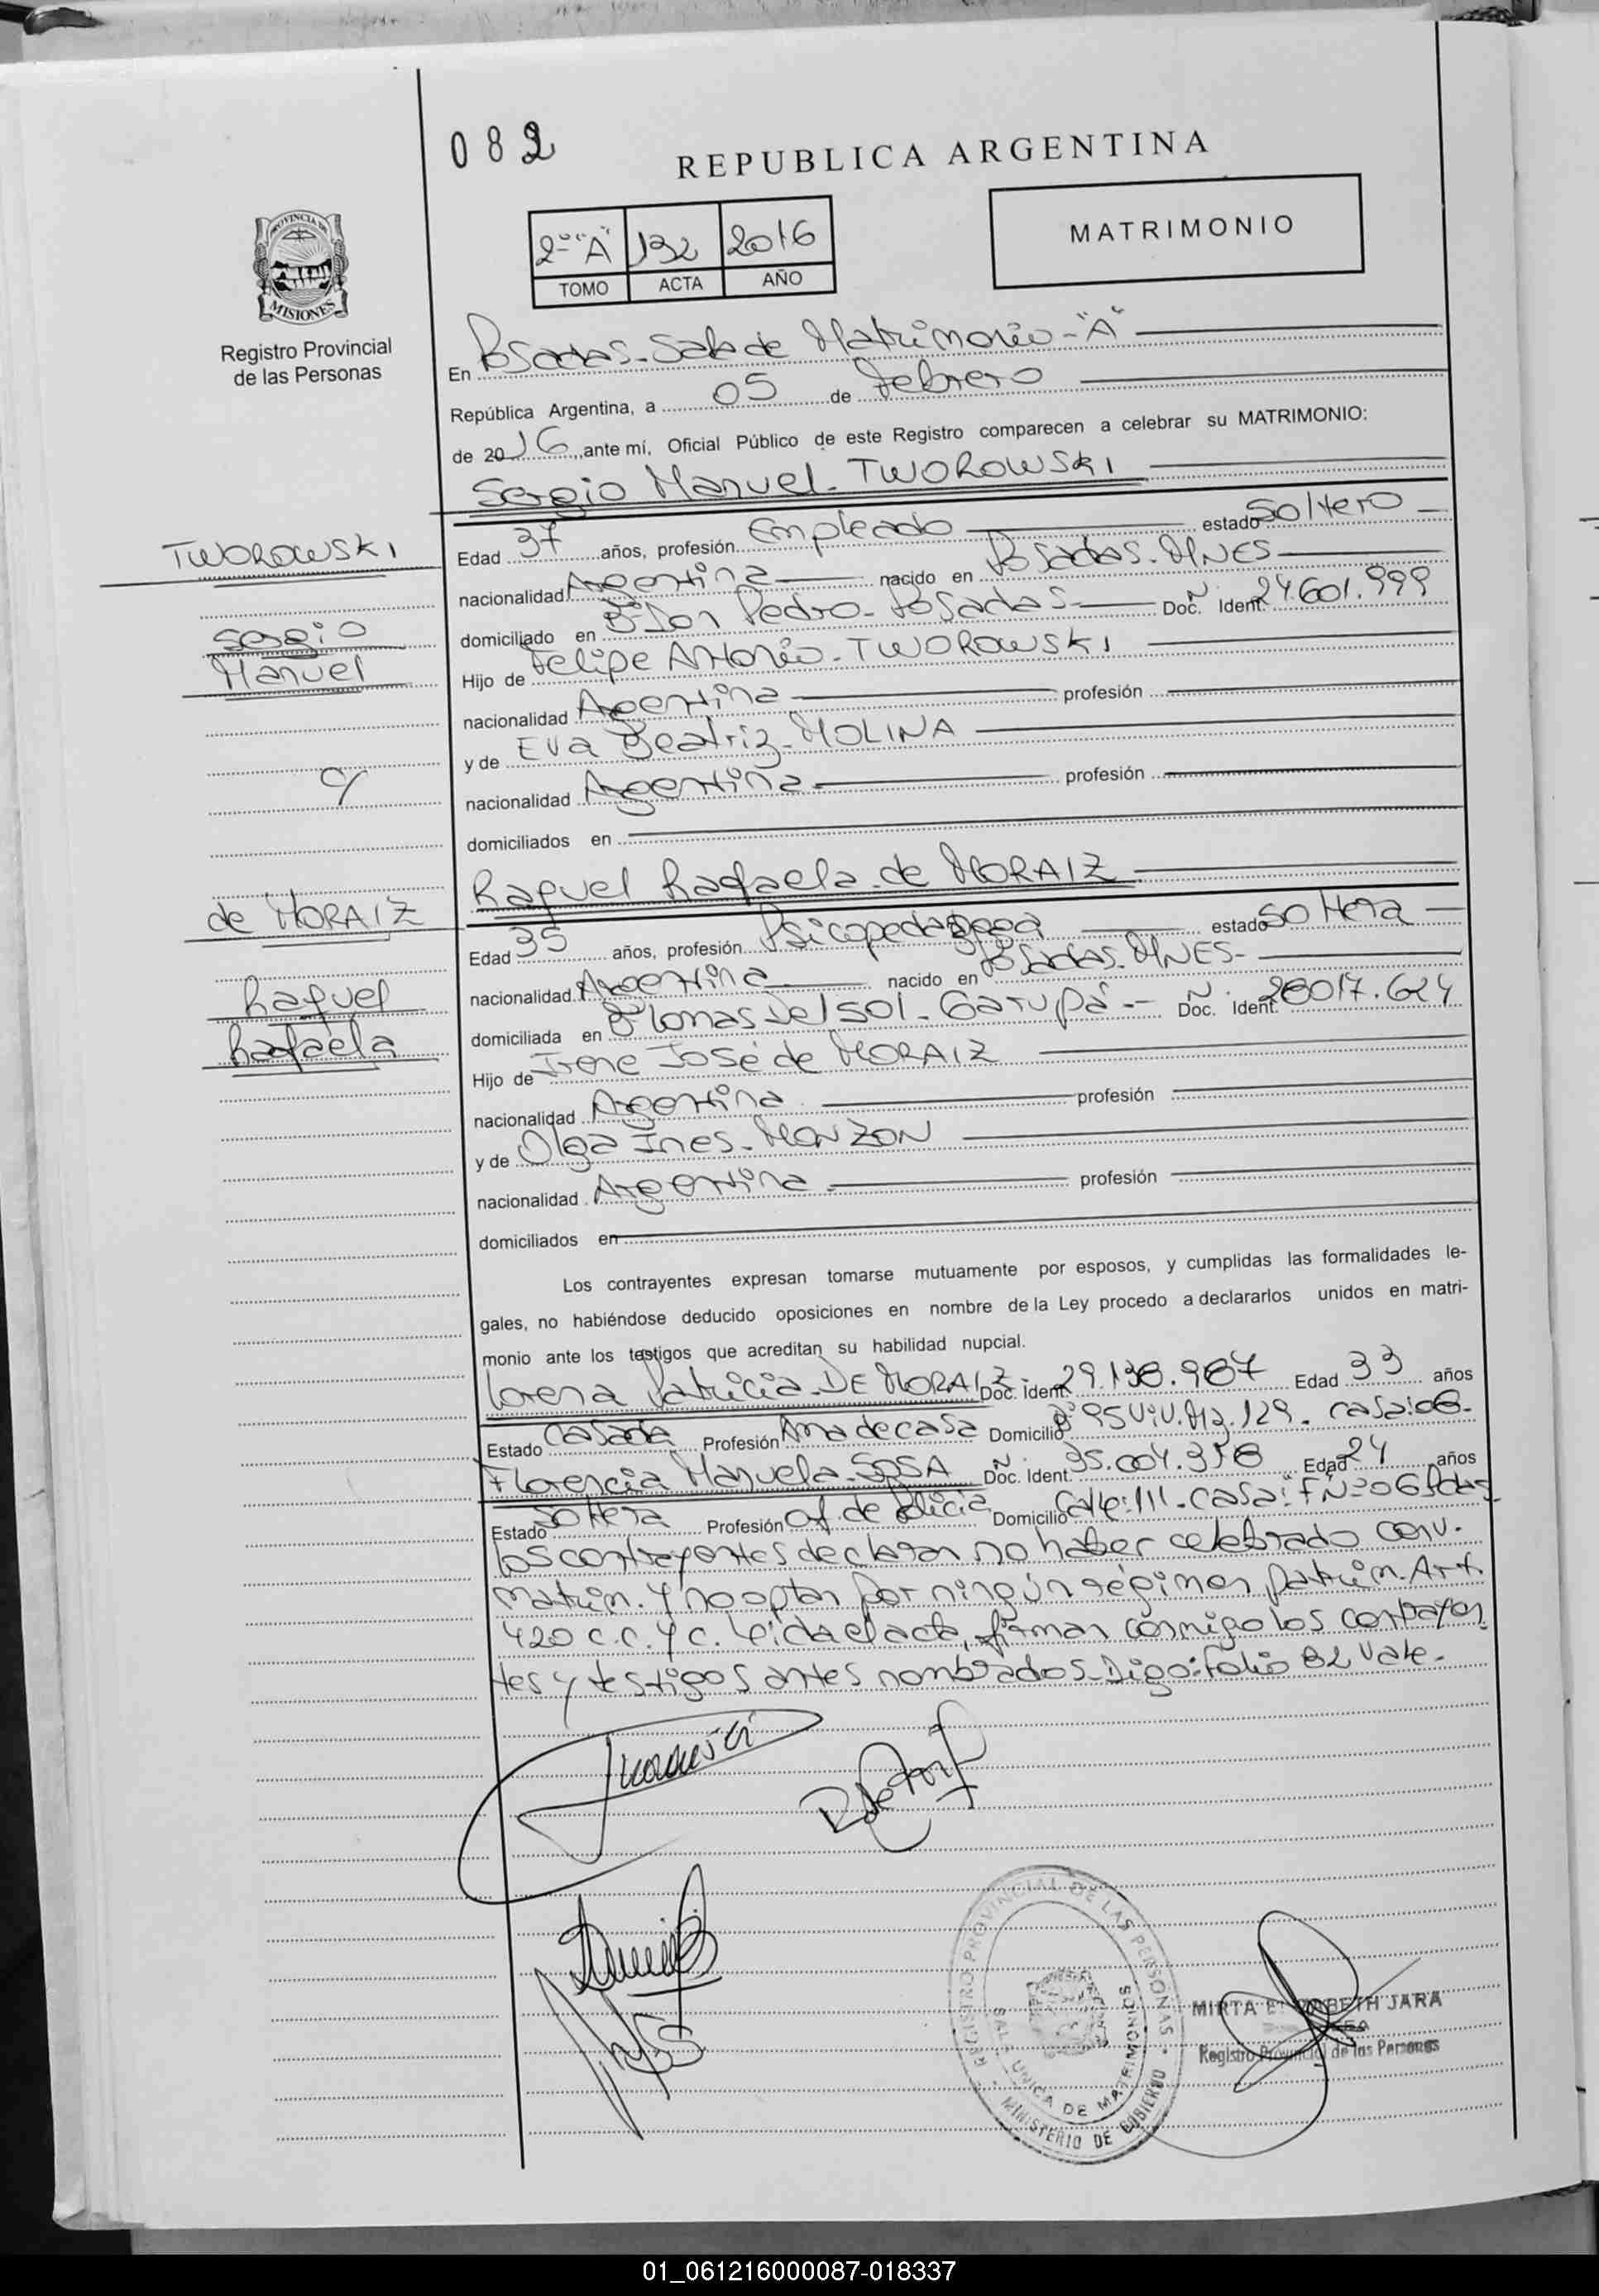 082
REPUBLICA ARGENTINA
2º "A" 132 2016
TOMO ACTA AÑO
MATRIMONIO
PROVINCIA DE
MISIONES
Registro Provincial
de las Personas
En Posadas-Sala de Matrimonio-"A"
República Argentina, a 05 de Febrero
de 2016, ante mí, Oficial Público de este Registro comparecen a celebrar su MATRIMONIO:
Sergio Manuel-TWOROWSKI
TWOROWSKI
Sergio
Manuel
c/
de MORAIZ
Raquel
Rafaela
Edad 37 años, profesión Empleado estado Soltero
nacionalidad Argentina nacido en Posadas-MNES
domiciliado en Bº Don Pedro-Posadas Doc. Ident. Nº 24.601.999
Hijo de Felipe Antonio-TWOROWSKI
nacionalidad Argentina profesión
y de Eva Beatriz-MOLINA
nacionalidad Argentina profesión
domiciliados en
Raquel Rafaela-de MORAIZ
Edad 35 años, profesión Psicopedagoga estado Soltera
nacionalidad Argentina nacido en Posadas-MNES-
domiciliada en Bº Lomas Del Sol-Garupá-- Doc. Ident. Nº 28017.624
Hijo de Irene José de MORAIZ
nacionalidad Argentina profesión
y de Olga Ines-MONZON
nacionalidad Argentina profesión
domiciliados en
Los contrayentes expresan tomarse mutuamente por esposos, y cumplidas las formalidades le-
gales, no habiéndose deducido oposiciones en nombre de la Ley procedo a declararlos unidos en matri-
monio ante los testigos que acreditan su habilidad nupcial.
Lorena Patricia-DE MORAIZ- Doc. Ident. 29.138.987 Edad 33 años
Estado Casada Profesión Ama de casa Domicilio Bº 95 Viv. Mz. 129. casa:08-
Florencia Manuela-SOSA Doc. Ident. Nº 35.004.358 Edad 24 años
Estado Soltera Profesión Of. de Policia Domicilio Calle:111-casa:"F Nº06 Pdas-
Los contrayentes declaran no haber celebrado conv.
matrim. y no optan por ningún régimen patrim. Art.
420 c.c. y c. Leida el acta, firman conmigo los contrayen
tes y testigos antes nombrados-Digo:folio 82 Vale-
REGISTRO PROVINCIAL DE LAS PERSONAS
SALA UNICA DE MATRIMONIOS
MINISTERIO DE GOBIERNO
MIRTA ELIZABETH JARA
Registro Provincial de las Personas
01_061216000087-018337